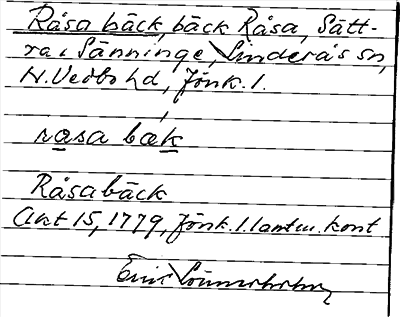 Råsa bäck, bäck Råsa, Sätt-
ra i Sänninge, Linderås sn,
N. Vedbo hd, Jönk. l.
rasa bæk
Råsabäck
Akt 15, 1779, Jönk. l. lantm. kont